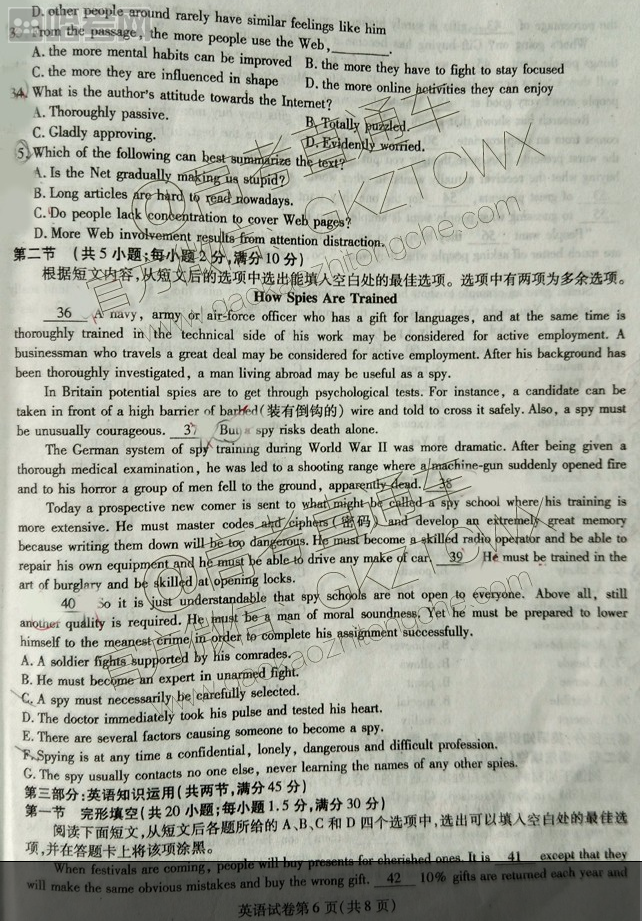 D. other people around rarely have similar feelings like him
From the passage, the more people use the Web,________.
A. the more mental habits can be improved B. the more they have to fight to stay focused
C. the more they are influenced in shape D. the more online activities they can enjoy
34. What is the author's attitude towards the Internet?
A. Thoroughly passive. B. Totally puzzled.
C. Gladly approving. D. Evidently worried.
5. Which of the following can best summarize the text?
A. Is the Net gradually making us stupid?
B. Long articles are hard to read nowadays.
C. Do people lack concentration to cover Web pages?
D. More Web involvement results from attention distraction.
第二节 (共5小题;每小题2分,满分10分)
根据短文内容,从短文后的选项中选出能填入空白处的最佳选项。选项中有两项为多余选项。
How Spies Are Trained
36 A navy, army or air-force officer who has a gift for languages, and at the same time is
thoroughly trained in the technical side of his work may be considered for active employment. A
businessman who travels a great deal may be considered for active employment. After his background has
been thoroughly investigated, a man living abroad may be useful as a spy.
In Britain potential spies are to get through psychological tests. For instance, a candidate can be
taken in front of a high barrier of barbed(装有倒钩的) wire and told to cross it safely. Also, a spy must
be unusually courageous. 37 But a spy risks death alone.
The German system of spy training during World War II was more dramatic. After being given a
thorough medical examination, he was led to a shooting range where a machine-gun suddenly opened fire
and to his horror a group of men fell to the ground, apparently dead. 38
Today a prospective new comer is sent to what might be called a spy school where his training is
more extensive. He must master codes and ciphers (密码) and develop an extremely great memory
because writing them down will be too dangerous. He must become a skilled radio operator and be able to
repair his own equipment and he must be able to drive any make of car. 39 He must be trained in the
art of burglary and be skilled at opening locks.
40 So it is just understandable that spy schools are not open to everyone. Above all, still
another quality is required. He must be a man of moral soundness. Yet he must be prepared to lower
himself to the meanest crime in order to complete his assignment successfully.
A. A soldier fights supported by his comrades.
B. He must become an expert in unarmed fight.
C. A spy must necessarily be carefully selected.
D. The doctor immediately took his pulse and tested his heart.
E. There are several factors causing someone to become a spy.
F. Spying is at any time a confidential, lonely, dangerous and difficult profession.
G. The spy usually contacts no one else, never learning the names of any other spies.
第三部分:英语知识运用(共两节,满分45分)
第一节 完形填空(共20小题;每小题1.5分,满分30分)
阅读下面短文,从短文后各题所给的A、B、C和D四个选项中,选出可以填入空白处的最佳选
项,并在答题卡上将该项涂黑。
When festivals are coming, people will buy presents for cherished ones. It is 41 except that they
will make the same obvious mistakes and buy the wrong gift. 42 10% gifts are returned each year and
英语试卷第6页(共8页)
@高考直通车
官方微信:GKZTCWX
www.gaokaozhitongche.com
@高考直通车
官方微信:GKZTCWX
www.gaokaozhitongche.com